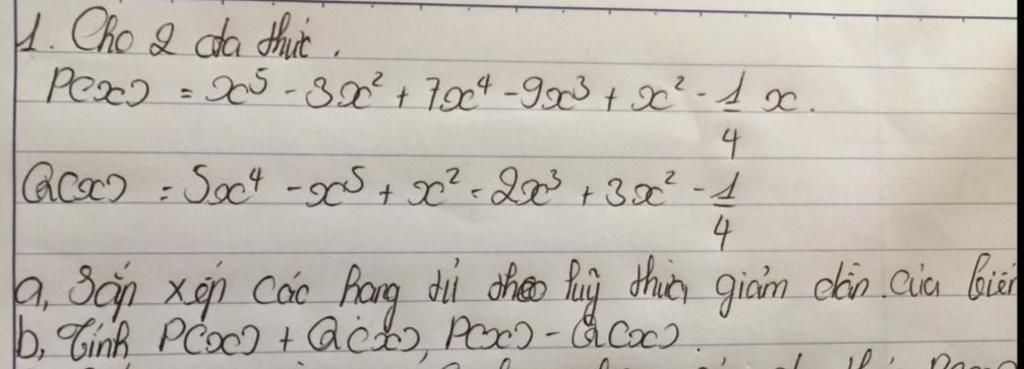 1. Cho 2 đa thức.
P(x) = x⁵ - 3x² + 7x⁴ - 9x³ + x² - 1/4 x.
Q(x) = 5x⁴ - x⁵ + x² - 2x³ + 3x² - 1/4
a, Sắp xếp các hạng tử theo luỹ thừa giảm dần của biến
b, Tính P(x) + Q(x), P(x) - Q(x).